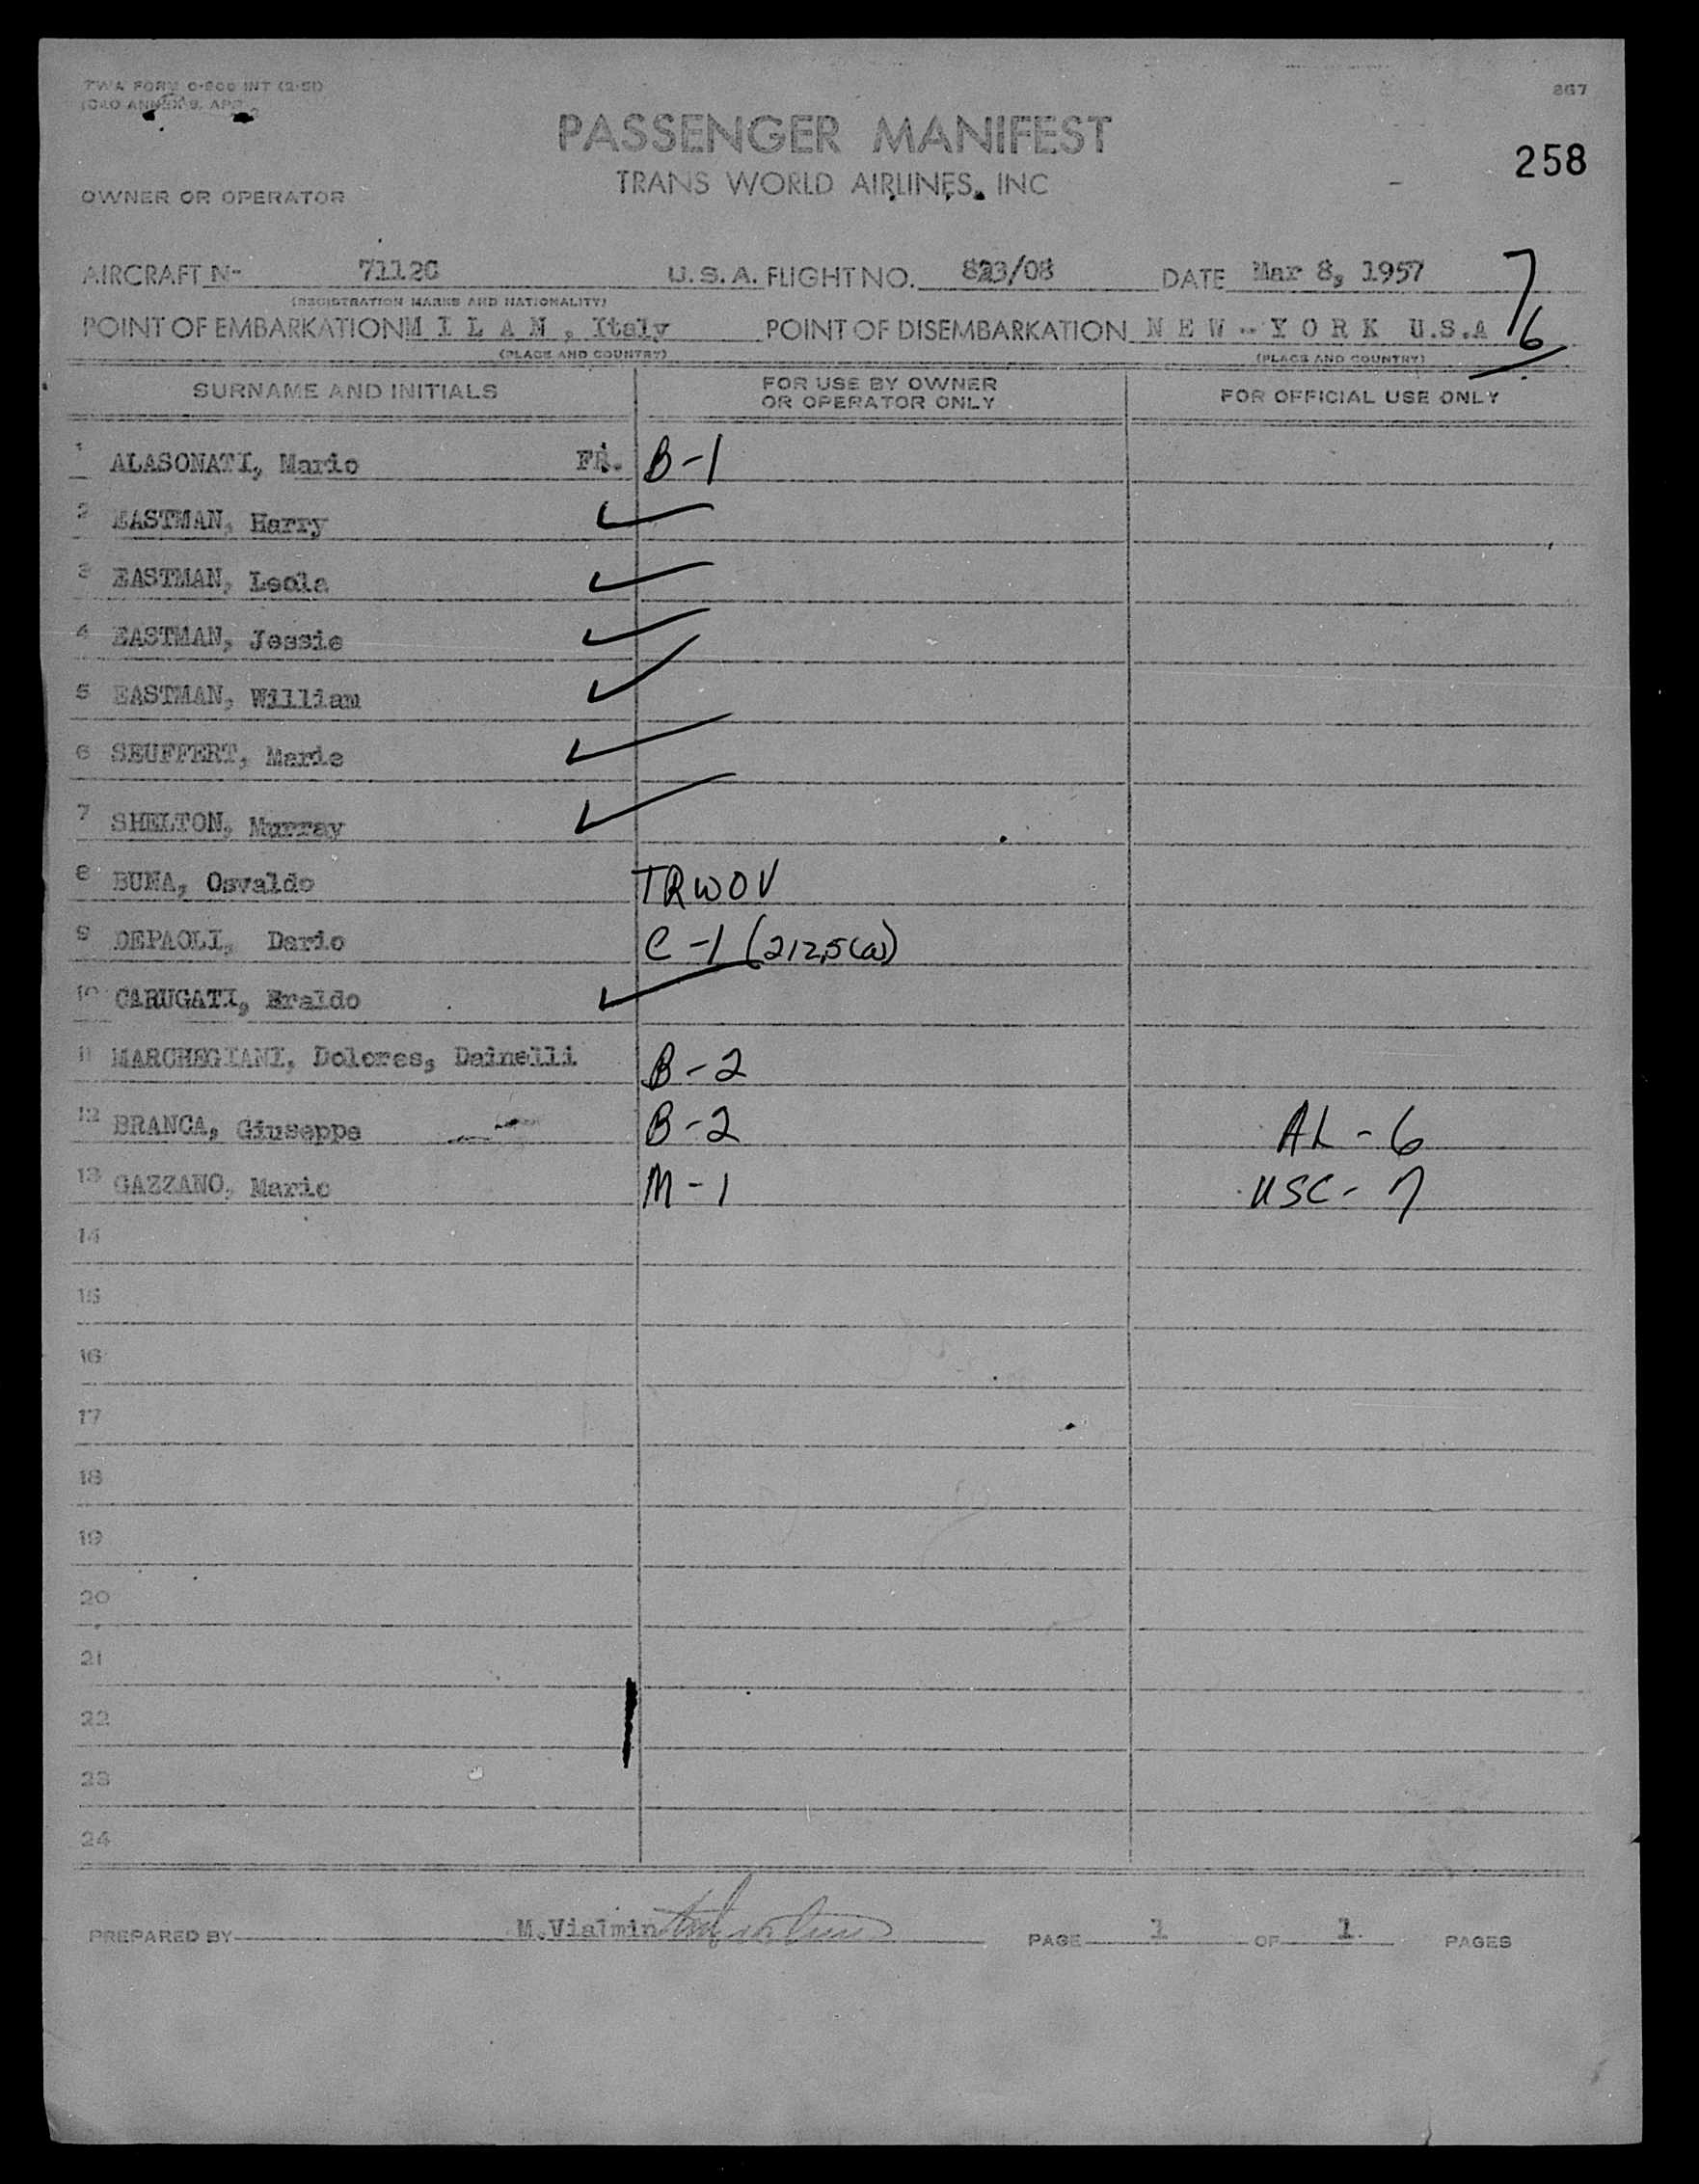 TWA FORM O-800 INT (2-51)
ICAO ANNEX 9, APP 2
867
PASSENGER MANIFEST
258
TRANS WORLD AIRLINES, INC
OWNER OR OPERATOR
AIRCRAFT N- 7112C U.S.A. FLIGHT NO. 823/08 DATE Mar 8, 1957
(REGISTRATION MARKS AND NATIONALITY)
7/6
POINT OF EMBARKATION M I L A N , Italy POINT OF DISEMBARKATION N E W - Y O R K U.S.A
(PLACE AND COUNTRY) (PLACE AND COUNTRY)
SURNAME AND INITIALS FOR USE BY OWNER OR OPERATOR ONLY FOR OFFICIAL USE ONLY
1 ALASONATI, Mario FR. B-1
2 EASTMAN, Harry ✓
3 EASTMAN, Leola ✓
4 EASTMAN, Jessie ✓
5 EASTMAN, William ✓
6 SEUFFERT, Marie ✓
7 SHELTON, Murray ✓
8 BUNA, Osvaldo TRWOV
9 DEPAOLI, Dario C-1 (212.5(a))
10 CARUGATI, Eraldo ✓
11 MARCHEGIANI, Dolores, Dainelli B-2
12 BRANCA, Giuseppe B-2 AL - 6
13 GAZZANO, Mario M-1 USC - 7
14
15
16
17
18
19
20
21
22
23
24
PREPARED BY M.Vialmin PAGE 1 OF 1. PAGES